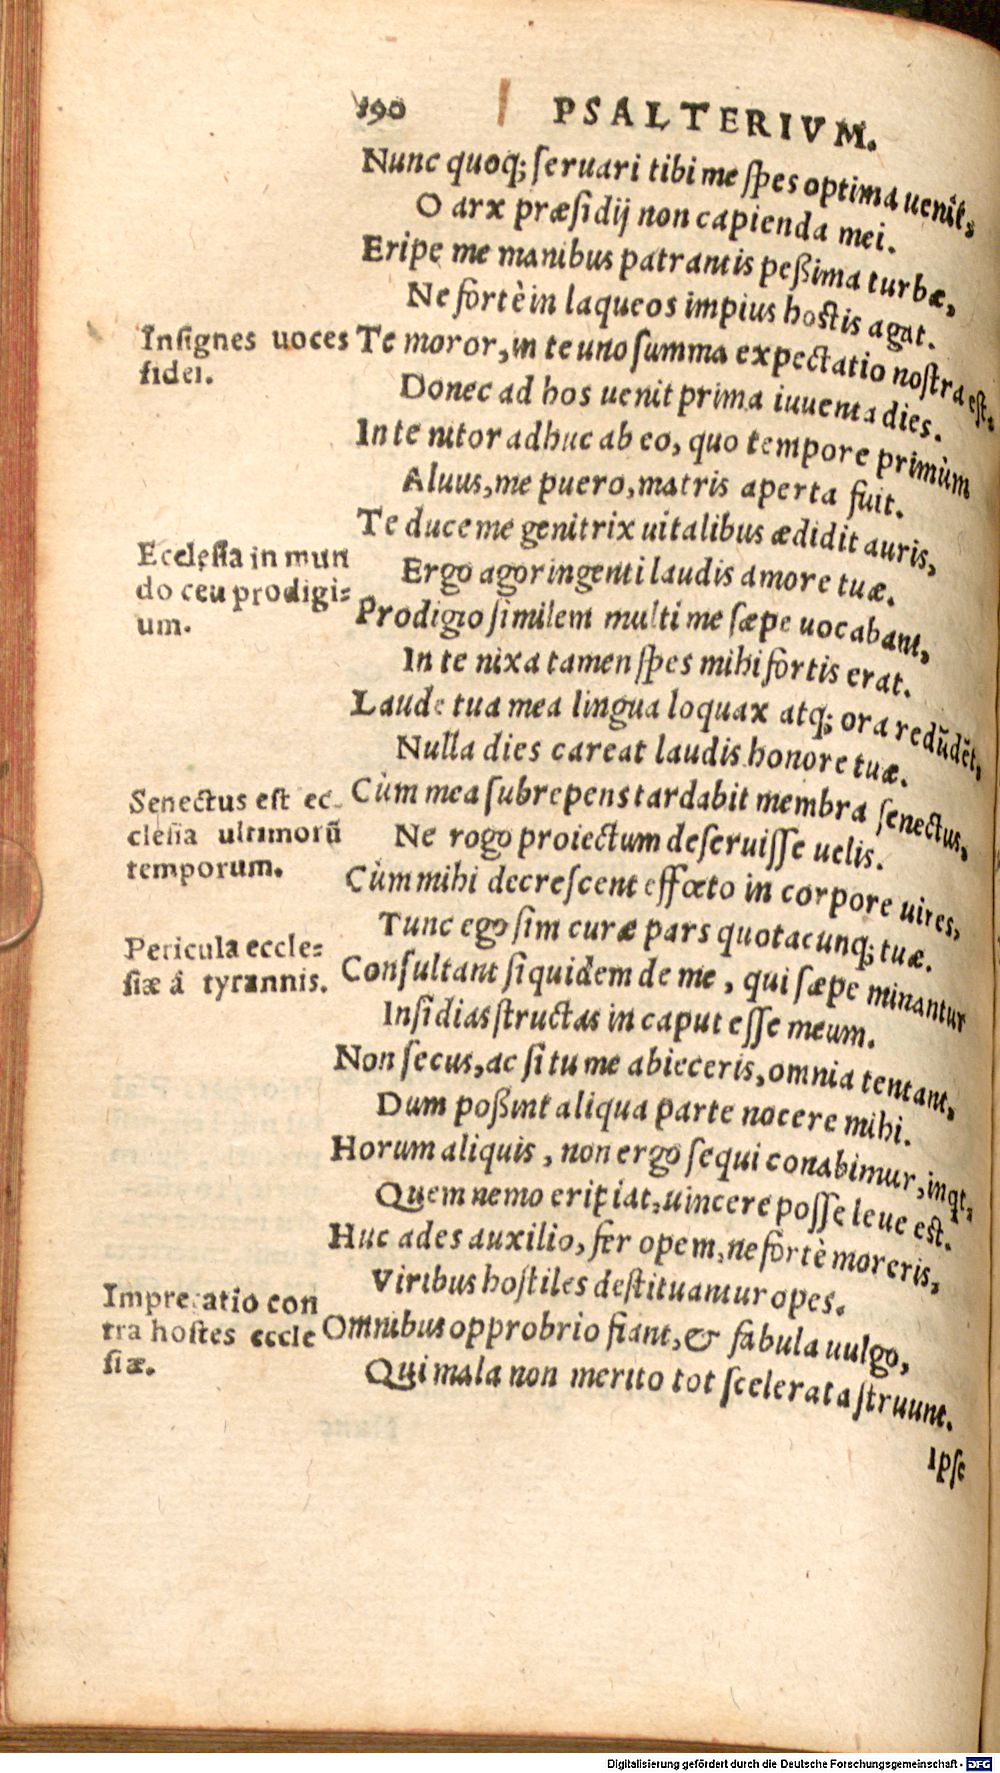 190 PSALTERIVM.
Nunc quoq; ſeruari tibi me ſpes optima uenit,
O arx præſidij non capienda mei.
Eripe me manibus patrantis peßima turbæ,
Ne fortè in laqueos impius hoſtis agat.
Inſignes uoces
fidei.
Te moror, in te uno ſumma expectatio noſtra eſt.
Donec ad hos uenit prima iuuenta dies.
In te nitor adhuc ab eo, quo tempore primùm
Aluus, me puero, matris aperta fuit.
Te duce me genitrix uitalibus ædidit auris,
Eccleſia in mun
do ceu prodigi=
um.
Ergo agor ingenti laudis amore tuæ.
Prodigio ſimilem multi me ſæpe uocabant,
In te nixa tamen ſpes mihi fortis erat.
Laude tua mea lingua loquax atq; ora redūdēt,
Nulla dies careat laudis honore tuæ.
Senectus eſt ec=
cleſia ultimorū
temporum.
Cùm mea ſubrepens tardabit membra ſenectus,
Ne rogo proiectum deſeruiſſe uelis.
Cùm mihi decreſcent effœto in corpore uires,
Tunc ego ſim curæ pars quotacunq; tuæ.
Pericula eccle=
ſiæ â tyrannis.
Conſultant ſiquidem de me, qui ſæpe minantur
Inſidias ſtructas in caput eſſe meum.
Non ſecus, ac ſi tu me abieceris, omnia tentant,
Dum poßint aliqua parte nocere mihi.
Horum aliquis, non ergo ſequi conabimur, inqt,
Quem nemo eripiat, uincere poſſe leue eſt.
Huc ades auxilio, fer opem, ne fortè moreris,
Viribus hoſtiles deſtituantur opes.
Imprecatio con
tra hoſtes eccle
ſiæ.
Omnibus opprobrio fiant, & fabula uulgo,
Qui mala non merito tot ſcelerata ſtruunt.
Ipſe
Digitalisierung gefördert durch die Deutsche Forschungsgemeinschaft - DFG